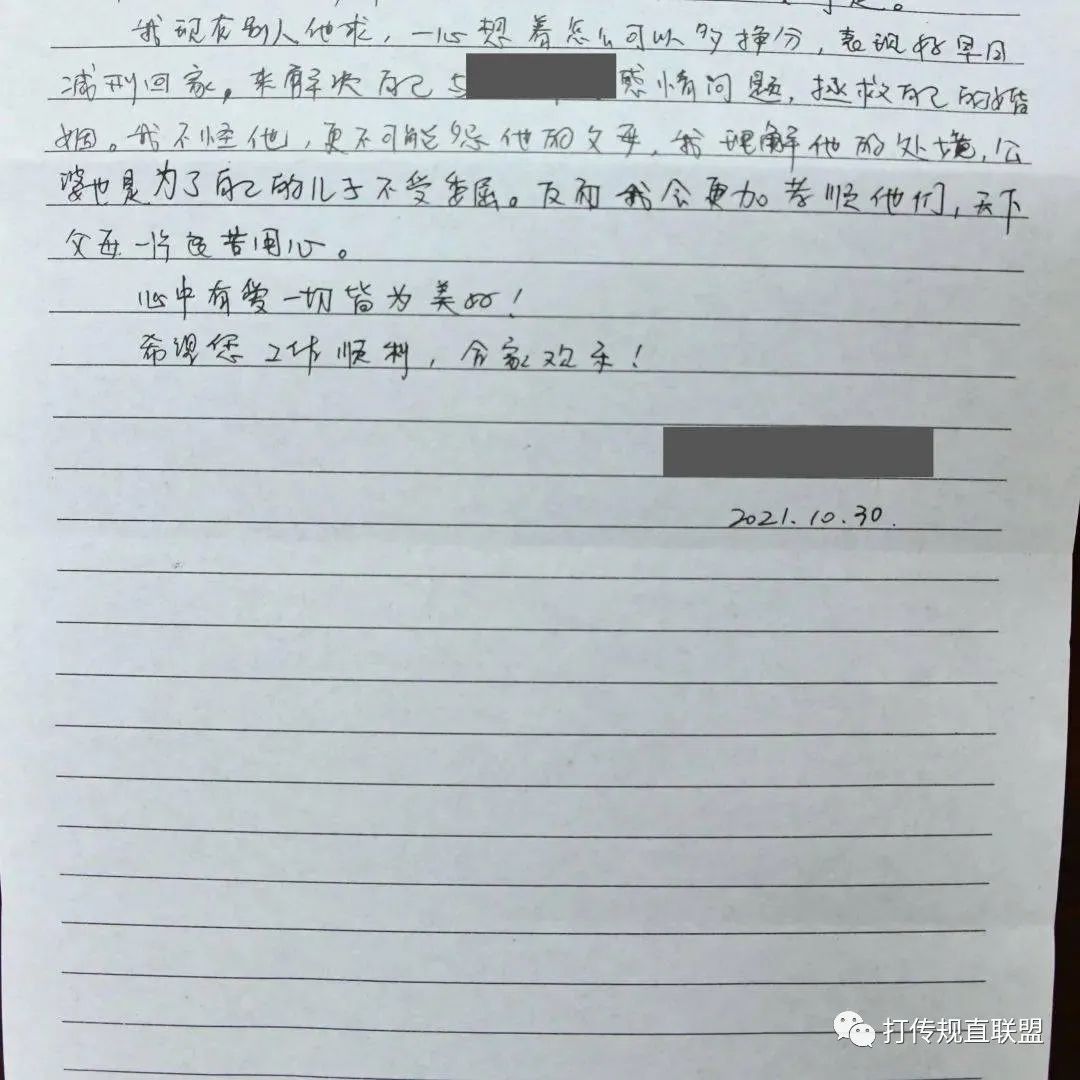 我现有别人他求，一心想着怎么可以多挣分，表现好早日
减刑回家。来解决自己与 感情问题，拯救自己的婚
姻。我不怪他，更不可能怨他的父母，我理解他的处境，公
婆也是为了自己的儿子不受委屈。反而我会更加孝顺他们，天下
父母一片良苦用心。
心中有爱一切皆为美好！
希望您工作顺利，合家欢乐！
2021.10.30.
打传规直联盟